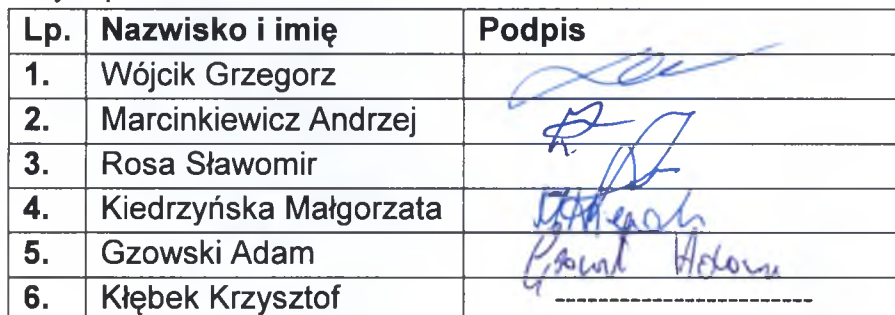 Lp. Nazwisko i imię Podpis
1. Wójcik Grzegorz
2. Marcinkiewicz Andrzej
3. Rosa Sławomir
4. Kiedrzyńska Małgorzata
5. Gzowski Adam Adam
6. Kłębek Krzysztof ------------------------